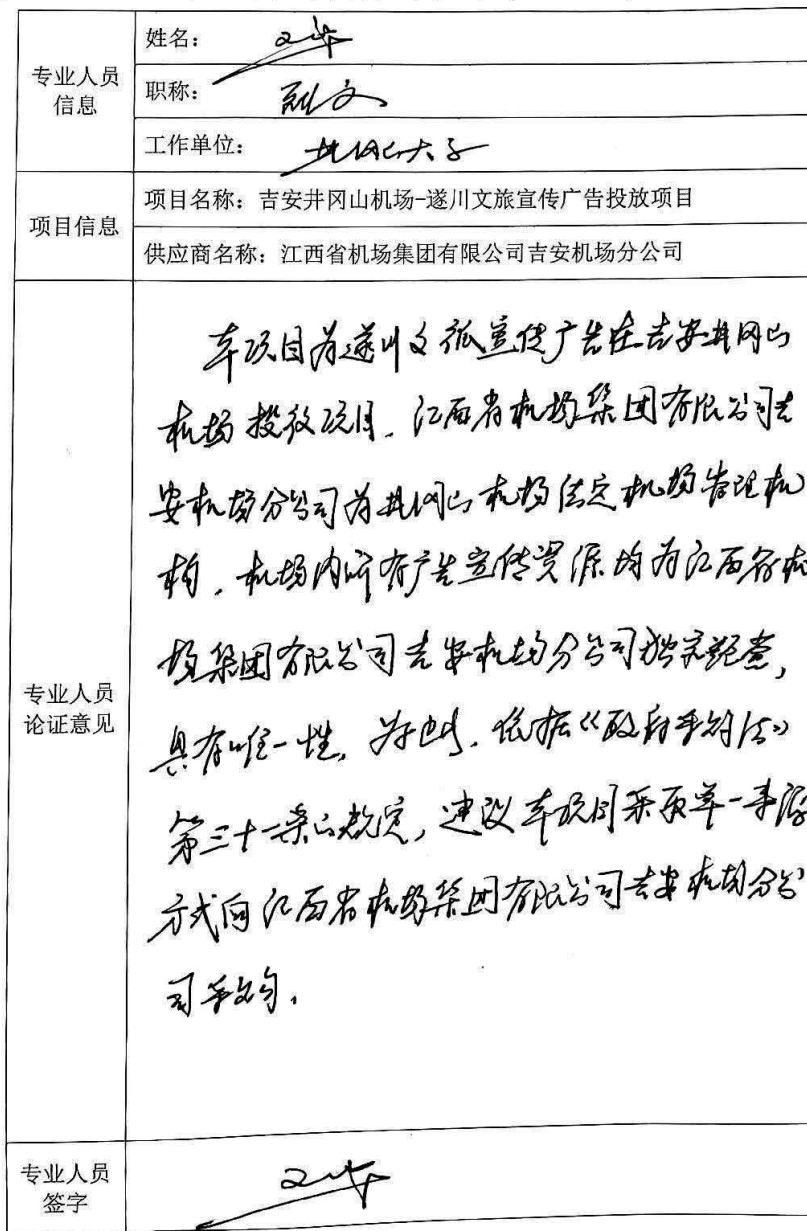 专业人员
信息
姓名：
职称：
工作单位：井冈山大学
项目信息
项目名称：吉安井冈山机场-遂川文旅宣传广告投放项目
供应商名称：江西省机场集团有限公司吉安机场分公司
专业人员
论证意见
本项目为遂川文旅宣传广告在吉安井冈山
机场投放项目，江西省机场集团有限公司吉
安机场分公司为井冈山机场法定机场管理机
构，机场内所有广告宣传资源均为江西省机
场集团有限公司吉安机场分公司独家经营，
具有唯一性，为此，依据《政府采购法》
第三十一条的规定，建议本项目采取单一来源
方式向江西省机场集团有限公司吉安机场分公
司采购。
专业人员
签字